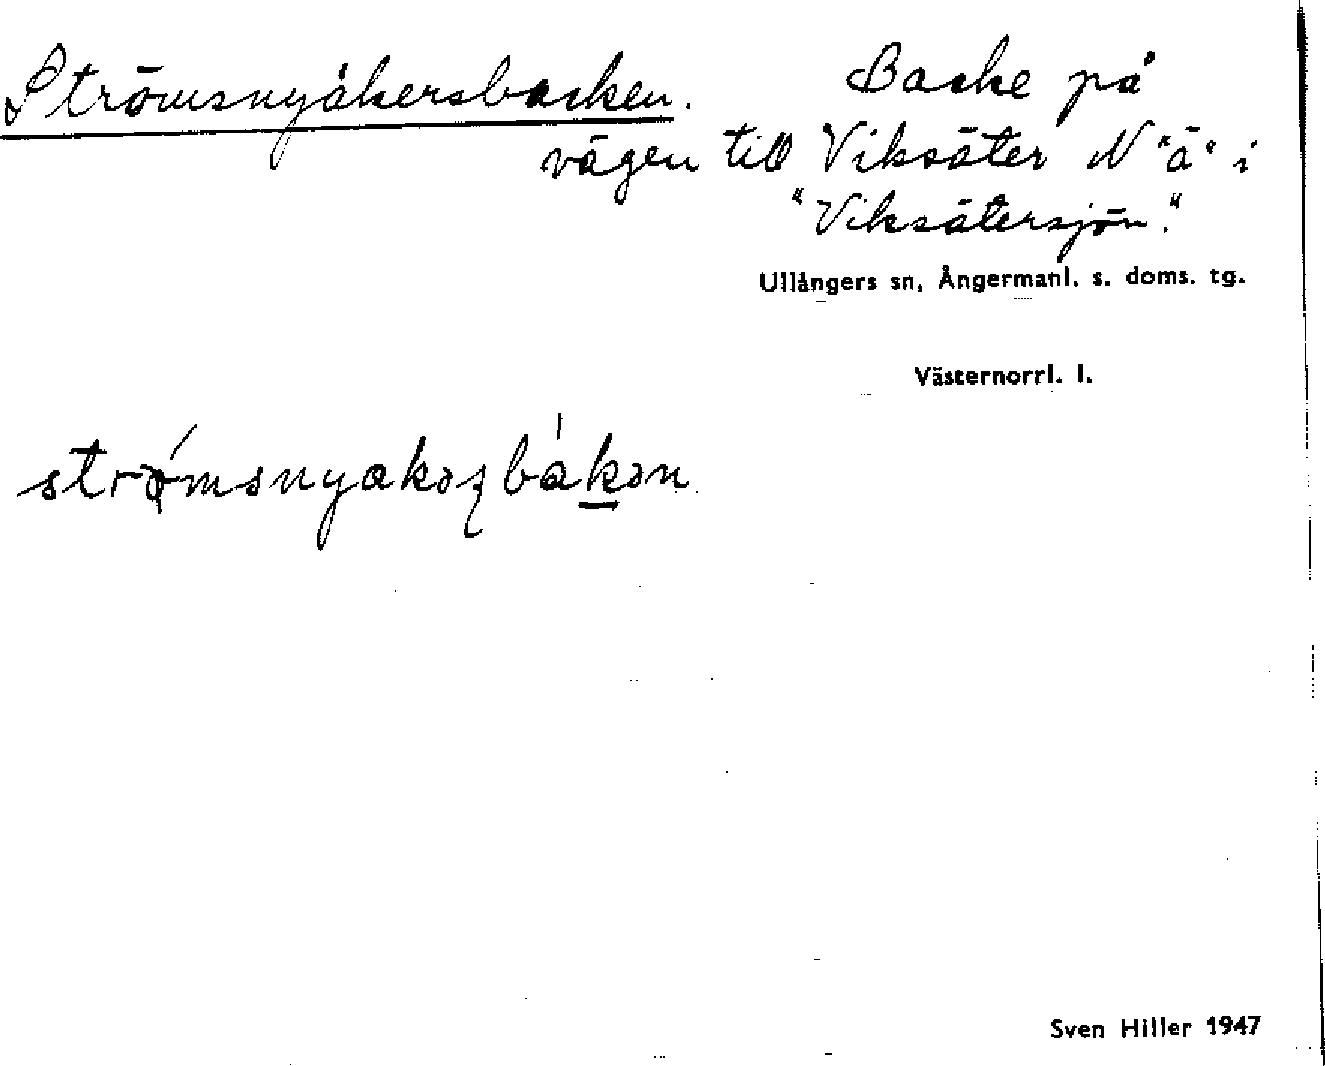 Strömsnyåkersbacken. Backe på
vägen till Viksäter N "ä" i
"Viksätersjön."
Ullångers sn, Ångermanl. s. doms. tg.
Västernorrl. l.
strǿmsnyakəʂbákən
Sven Hiller 1947